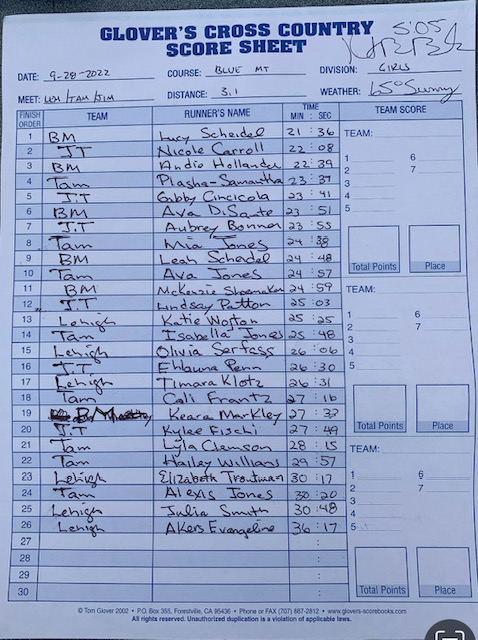 GLOVER'S CROSS COUNTRY
SCORE SHEET
5:05
DATE: 9-28-2022 COURSE: BLUE MT DIVISION: GIRLS
MEET: LEH/TAM/JIM DISTANCE: 3.1 WEATHER: 65° Sunny
FINISH ORDER TEAM RUNNER'S NAME TIME MIN : SEC TEAM SCORE
1 BM Lucy Scheidel 21 : 36
2 JT Nicole Carroll 22 : 08
3 BM Andie Hollander 22 : 39
4 Tam Plasha-Samantha 23 : 37
5 J.T Gabby Cincicola 23 : 41
6 BM Ava DiSante 23 : 51
7 J.T Aubrey Bonner 23 : 55
8 Tam Mia Jones 24 : 38
9 BM Leah Scheidel 24 : 48
10 Tam Ava Jones 24 : 57
11 BM McKenzie Shoemaker 24 : 59
12 J.T Lindsay Patton 25 : 03
13 Lehigh Katie Wofton 25 : 25
14 Tam Isabella Jones 25 : 48
15 Lehigh Olivia Serfass 26 : 06
16 J.T Penn 26 : 30
17 Lehigh Timara Klotz 26 : 31
18 Tam Cali Frantz 27 : 16
19 BM Keara Markley 27 : 32
20 J.T Kylee Fischi 27 : 49
21 Tam Lyla Clemson 28 : 15
22 Tam Hailey Willians 29 : 57
23 Lehigh Elizabeth Troutman 30 : 17
24 Tam Alexis Jones 30 : 20
25 Lehigh Julia Smith 30 : 48
26 Lehigh Akers Evangeline 36 : 17
27 :
28 :
29 :
30 :
TEAM:
1 6
2 7
3
4
5
Total Points Place
TEAM:
1 6
2 7
3
4
5
Total Points Place
TEAM:
1 6
2 7
3
4
5
Total Points Place
© Tom Glover 2002 • P.O. Box 355, Forestville, CA 95436 • Phone or FAX (707) 887-2812 • www.glovers-scorebooks.com
All rights reserved. Unauthorized duplication is a violation of applicable laws.